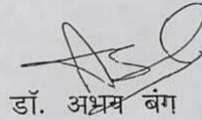 डॉ. अभय बंग